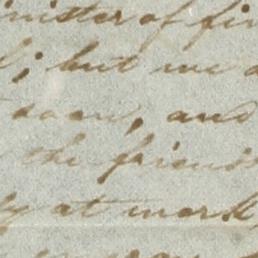 minister of fin
; but we
soon, and
the friends
at work,